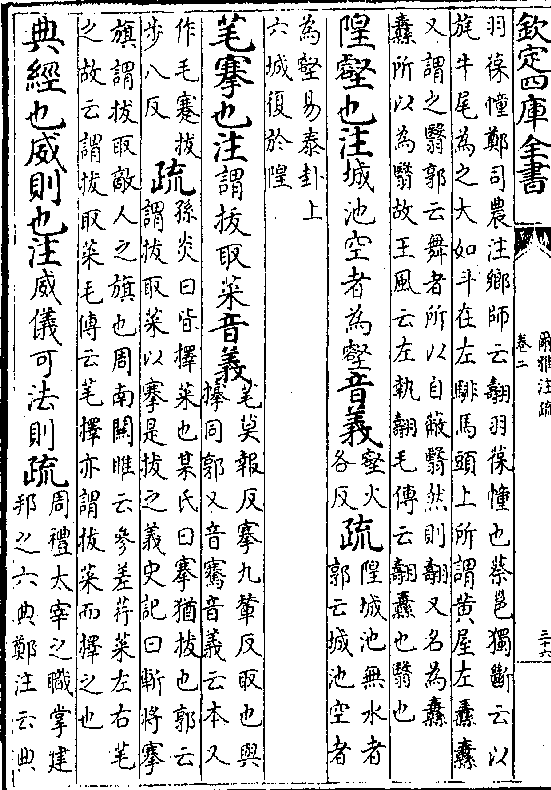 欽定四庫全書
爾雅注疏
卷二
三十六
羽葆幢鄭司農注鄉師云翿羽葆幢也蔡邕獨斷云以
旄牛尾為之大如斗在左騑馬頭上所謂黄屋左纛纛
又謂之翳郭云舞者所以自蔽翳然則翿又名為纛
纛所以為翳故王風云左執翿毛傳云翿纛也翳也
隍壑也注城池空者為壑音義壑火各反疏隍城池無水者郭云城池空者
為壑易泰卦上六城復於隍
芼搴也注謂拔取菜音義芼莫報反搴九輦反取也與攓同郭又音騫音義云本又
作毛蹇拔步八反疏孫炎曰皆擇菜也某氏曰搴猶拔也郭云謂拔取菜以搴是拔之義史記曰斬將搴
旗謂拔取敵人之旗也周南關雎云參差荇菜左右芼
之故云謂拔取菜毛傳云芼擇亦謂拔菜而擇之也
典經也威則也注威儀可法則疏周禮太宰之職掌建邦之六典鄭注云典